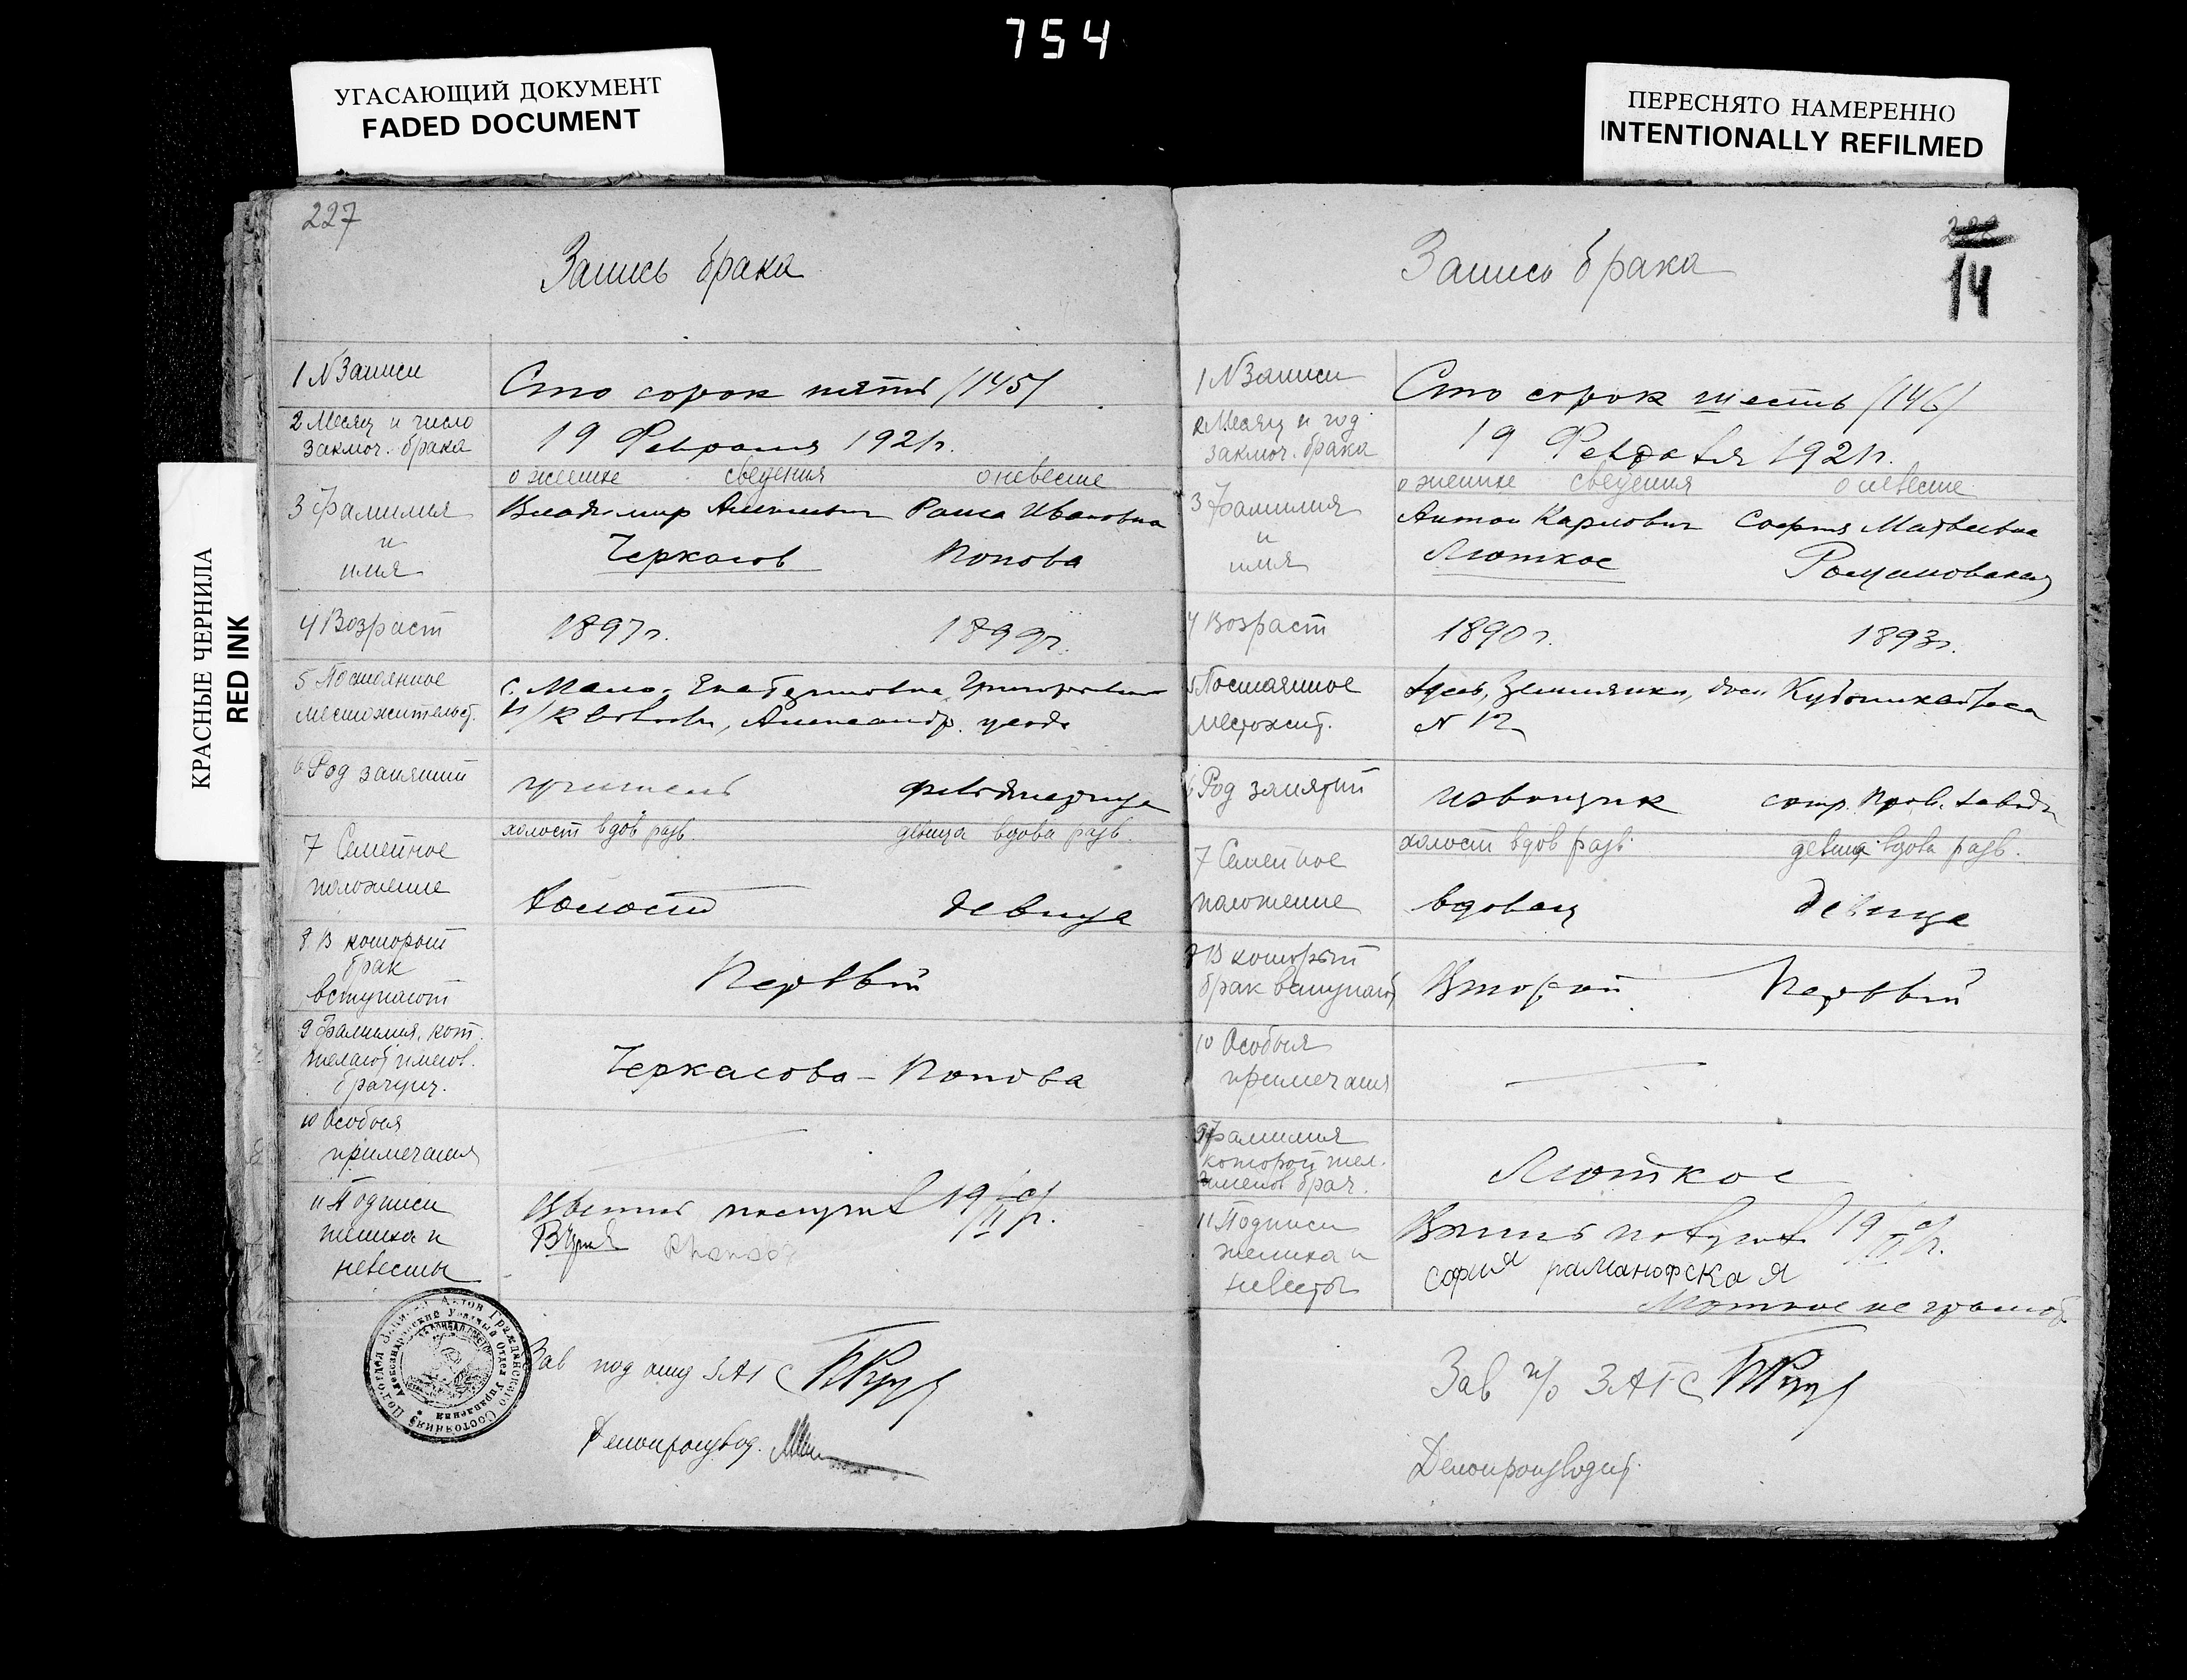 754
УГАСАЮЩИЙ ДОКУМЕНТ
FADED DOCUMENT
ПЕРЕСНЯТО НАМЕРЕННО
INTENTIONALLY REFILMED
КРАСНЫЕ ЧЕРНИЛА
RED INK
227
Запись брака
1 № Записи
Сто сорок пять /145/
2 Месяц и число
заключ. брака
19 Февраля 1921г.
о женихе сведения о невесте
3 Фамилия
и
имя
Владимир Раиса Ивановна
Черкасов Попова
4 Возраст
1897г. 1899г.
5 Постоянное
местожительст.
с. Мало-Екатериновка
Александр. уезда
6 Род занятий
учитель
холост вдов разв. девица вдова разв.
7 Семейное
положение
Холост девица
8 В который
брак
вступают
Первый
9 Фамилия, кот.
желают именов.
брачущ.
Черкасова - Попова
10 Особыя
примечания
11 Подписи
жениха и
невесты
19/II 21г.
Подотдел Записи Актов Гражданского Состояния
Зав под отд ЗАГС
Делопроизвод.
228
14
Запись брака
1 № Записи
Сто сорок шесть /146/
2 Месяц и год
заключ. брака
19 Февраля 1921г.
о женихе сведения о невесте
3 Фамилия
и
имя
Антон Карлович София Матвеевна
Люткос Романовская
4 Возраст
1890г. 1893г.
5 Постоянное
местожит.
здесь,
№ 12
6 Род занятий
извощик сотр. завода
холост вдов разв. девица вдова разв.
7 Семейное
положение
вдовец девица
8 В который
брак вступают
Второй Первый
10 Особыя
примечания
9 Фамилия
которой жел.
именов брач.
Люткос
11 Подписи
жениха и
невесты
19/II 21г.
софия раманофская
Люткос не грамот.
Зав п/о ЗАГС
Делопроизводит.